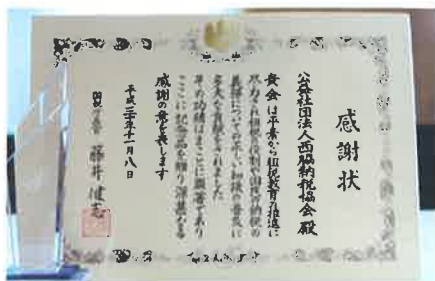 感謝状
公益社団法人西脇納税協会殿
貴会は平素から租税教育の推進に
尽力され租税の役割や国民の納税の
義務についての正しい知識の普及に
多大な貢献をされました
その功績はまことに顕著であり
ここに記念品を贈り深甚なる
感謝の意を表します
平成三十年十一月八日
国税庁長官 藤井健志